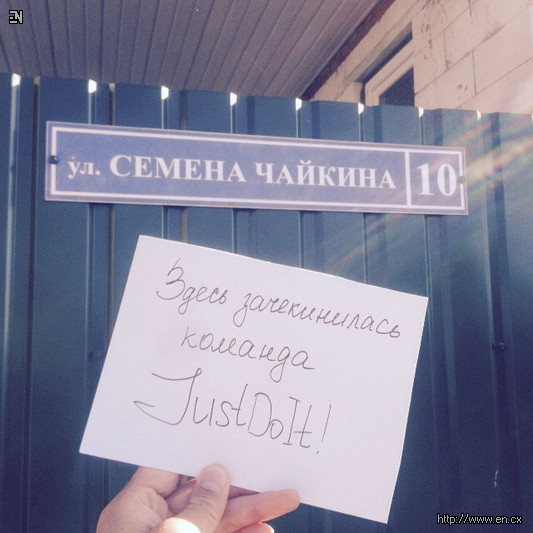 EN
ул. СЕМЕНА ЧАЙКИНА 10
Здесь зачекинилась
команда
JustDoIt!
http://www.en.cx